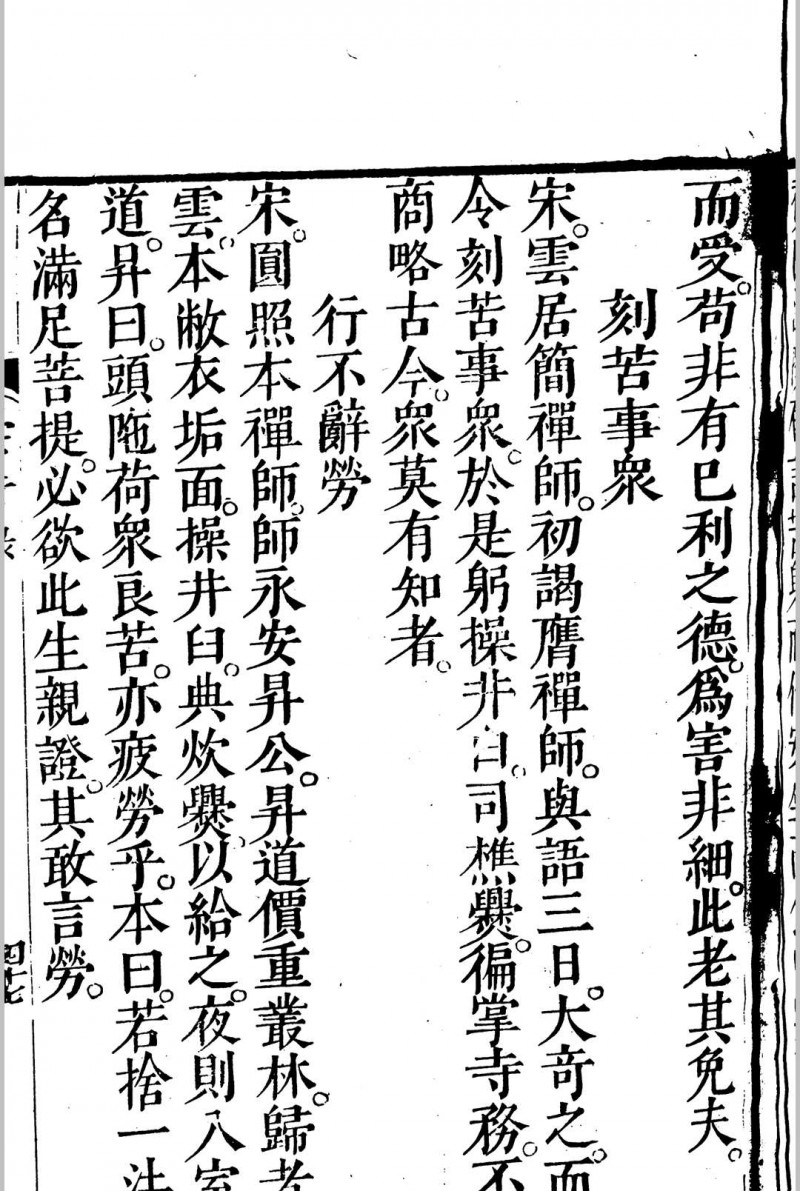 而受。苟非有已利之德。爲害非細。此老其免夫。
刻苦事衆
宋。雲居簡禪師。初謁膺禪師。與語三日。大奇之。而
令刻苦事衆。於是躬操井臼。司樵爨。徧掌寺務。不
商略古今。衆莫有知者。
行不辭勞
宋。圓照本禪師。師永安昇公。昇道價重叢林。歸者
雲。本敝衣垢面。操井臼。典炊爨。以給之。夜則入室
道。昇曰。頭陁荷衆良苦。亦疲勞乎。本曰。若捨一法
名滿足菩提。必欲此生親證。其敢言勞。
四十七